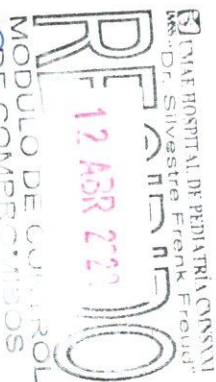 UMAE HOSPITAL DE PEDIATRÍA CMNSXXI
IMSS "Dr. Silvestre Frenk Freud"
RECIBIDO
12 ABR 2022
MODULO DE CONTROL
DE COMPROMISOS